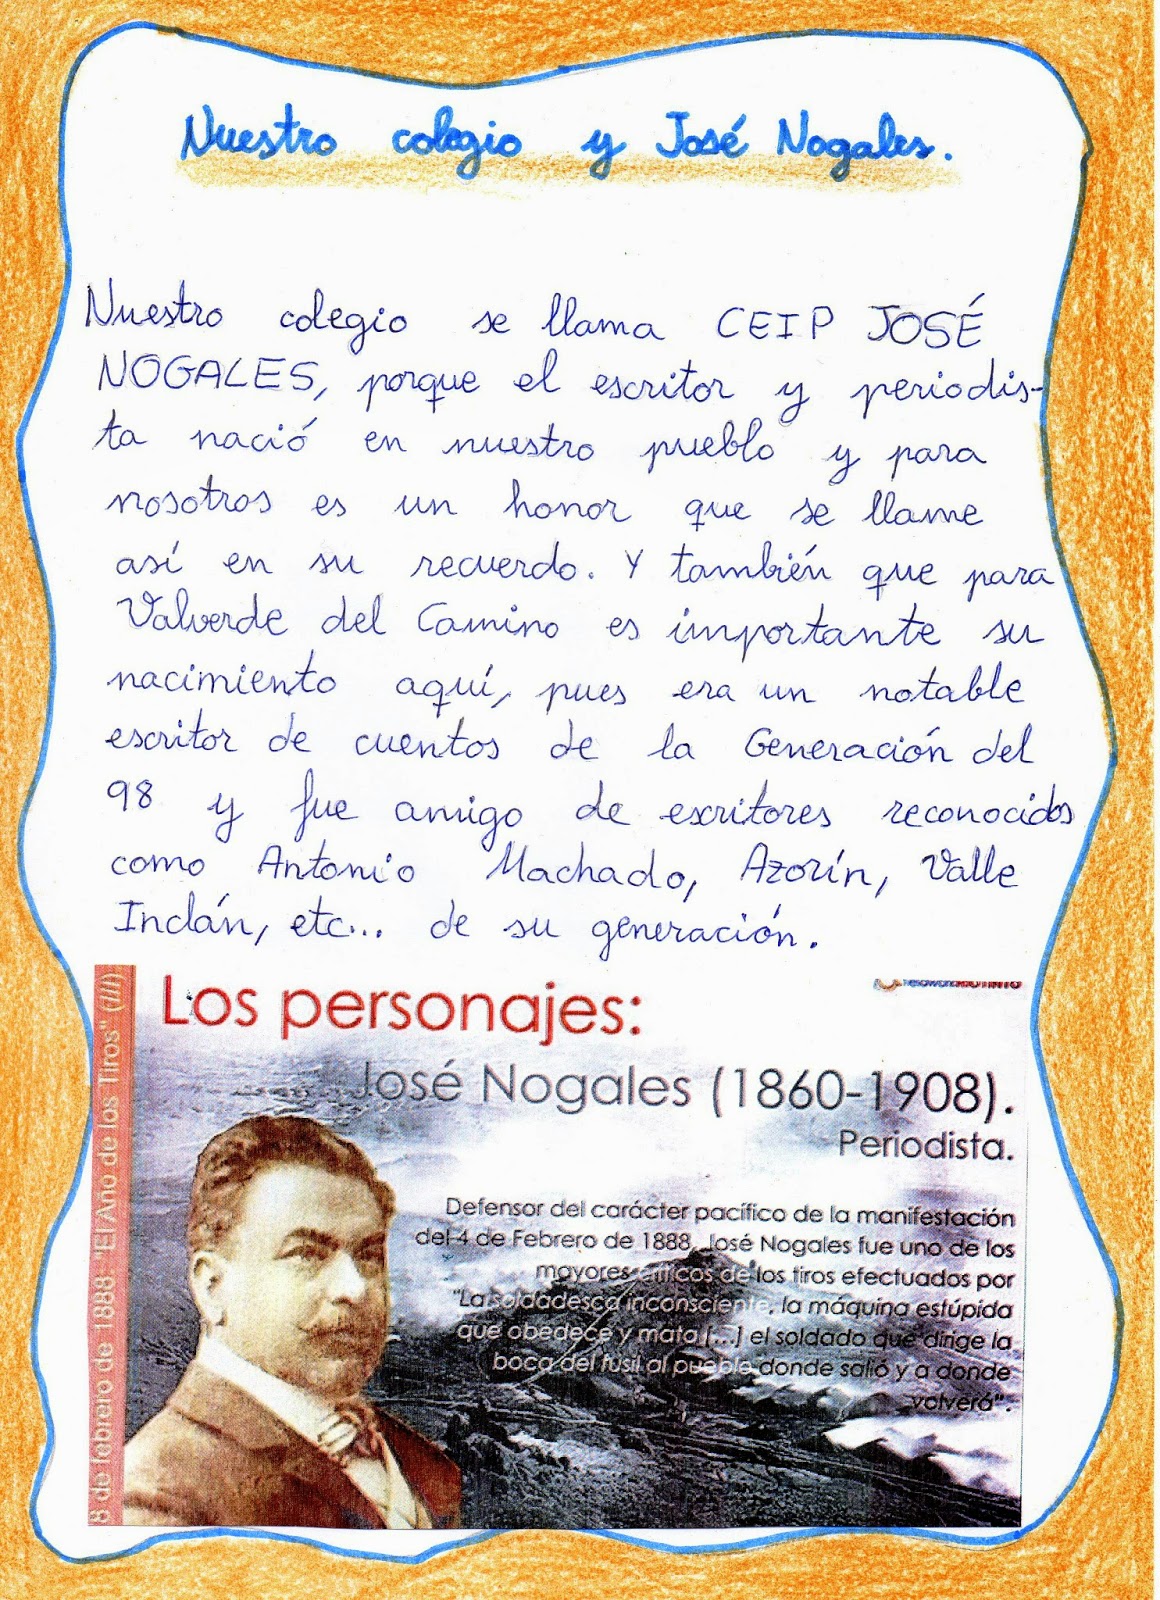 Nuestro colegio y José Nogales.
Nuestro colegio se llama CEIP JOSÉ
NOGALES, porque el escritor y periodis-
ta nació en nuestro pueblo y para
nosotros es un honor que se llame
así en su recuerdo. Y también que para
Valverde del Camino es importante su
nacimiento aquí, pues era un notable
escritor de cuentos de la Generación del
98 y fue amigo de escritores reconocidos
como Antonio Machado, Azorín, Valle
Inclán, etc... de su generación.
8 de febrero de 1888: "El Año de los Tiros" (III)
Los personajes:
José Nogales (1860-1908).
Periodista.
Defensor del carácter pacífico de la manifestación
del 4 de Febrero de 1888, José Nogales fue uno de los
mayores críticos de los tiros efectuados por
"La soldadesca inconsciente, la máquina estúpida
que obedece y mata [...] el soldado que dirige la
boca del fusil al pueblo donde salió y a donde
volverá".